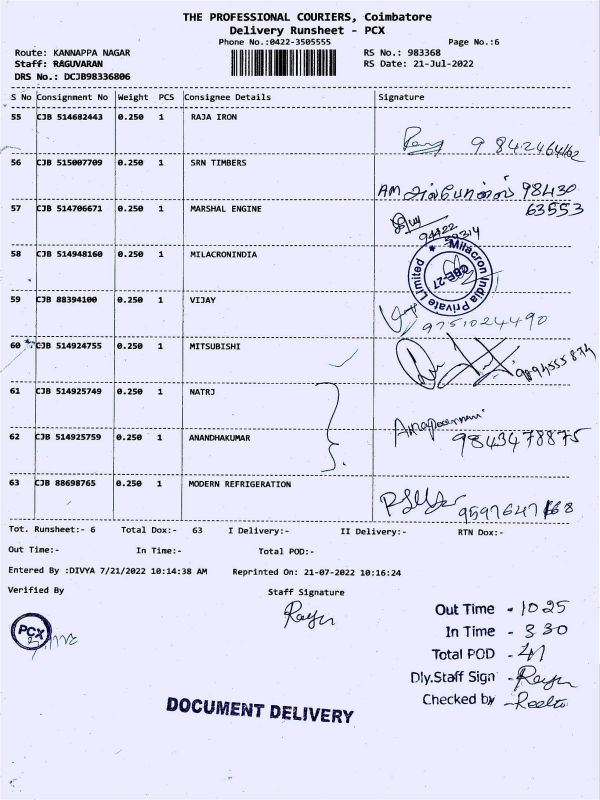 THE PROFESSIONAL COURIERS, Coimbatore
Delivery Runsheet - PCX
Phone No.:0422-3505555 Page No.:6
Route: KANNAPPA NAGAR RS No.: 983368
Staff: RAGUVARAN RS Date: 21-Jul-2022
DRS No.: DCJB98336806
S No Consignment No Weight PCS Consignee Details Signature
55 CJB 514682443 0.250 1 RAJA IRON
56 CJB 515007709 0.250 1 SRN TIMBERS
AM 98430
57 CJB 514706671 0.250 1 MARSHAL ENGINE 63553
58 CJB 514948160 0.250 1 MILACRONINDIA
Milacron India Private Limited
CBE-27
59 CJB 88394100 0.250 1 VIJAY
9751024490
60 CJB 514924755 0.250 1 MITSUBISHI
9894555874
61 CJB 514925749 0.250 1 NATRJ
62 CJB 514925759 0.250 1 ANANDHAKUMAR
9843478875
63 CJB 88698765 0.250 1 MODERN REFRIGERATION
Tot. Runsheet:- 6 Total Dox:- 63 I Delivery:- II Delivery:- RTN Dox:-
Out Time:- In Time:- Total POD:-
Entered By :DIVYA 7/21/2022 10:14:38 AM Reprinted On: 21-07-2022 10:16:24
Verified By Staff Signature
PCX
Out Time - 1025
In Time - 330
Total POD - 41
Dly.Staff Sign -
Checked by -
DOCUMENT DELIVERY